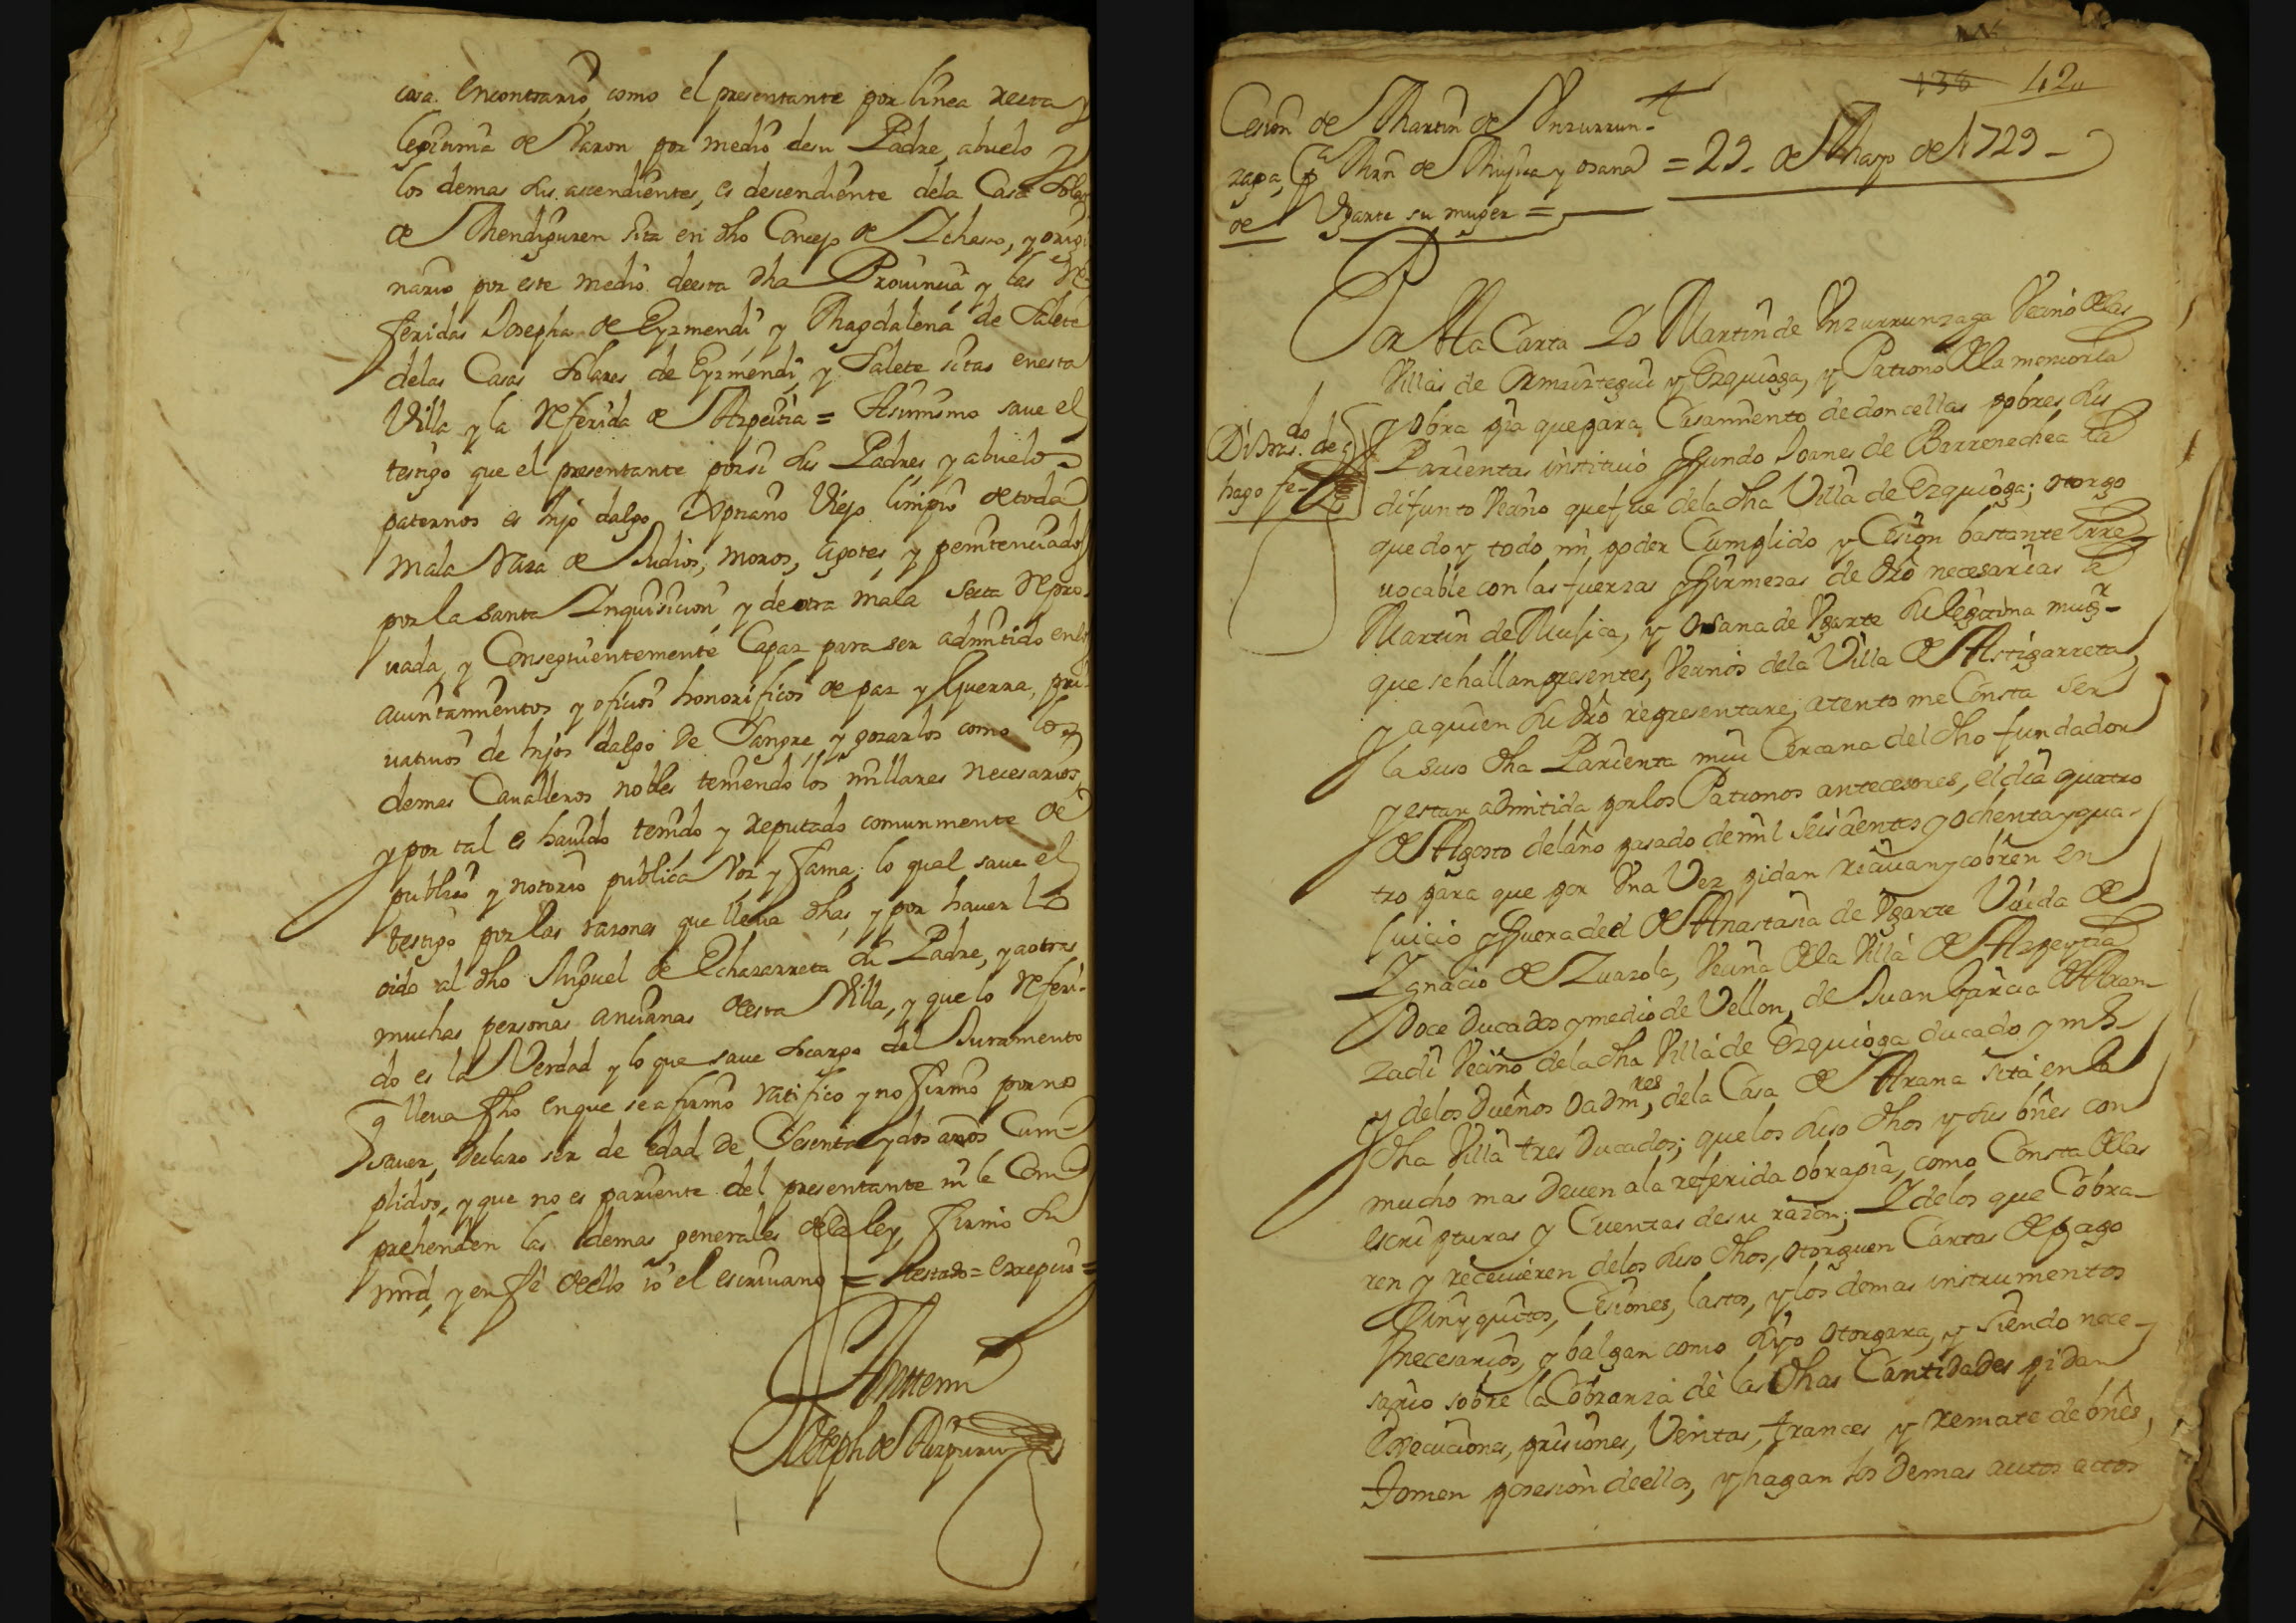 cosa encontrario, como el presentante por linea recta y
legitima de Varon por medio de su Padre, abuelo y
los demas sus ascendientes, es descendiente dela Casa Solar
de Mendiguren sita en dho Concejo de Ychaso, y origi
nario por este medio deesta dha Prouincia y las Re
feridas Josepha de Eyzmendi, y Magdalena de Salete
delas Casas Solares de Eyzmendi, y Salete sitas enesta
Villa y la referida de Azpeitia = Asimismo saue el
testigo que el presentante porsi sus Padres y abuelos
paternos es hijo dalgo Xptiano Viejo limpio de toda
mala Raza de Judios, moros, agotes, y penitenciados
por la santa Inquisicion y de otra mala secta repro-
uada, y Conseguientemente Capaz para ser admitido enlos
auintamientos y oficios honorificos de paz y Guerra, pri-
uatiuos de hijos dalgo de Sangre, y gozarlos como los
demas Caualleros nobles teniendo los millares necesarios,
y por tal es hauido tenido y reputado comunmente de
publico y notorio publica Voz y fama; lo qual saue el
testigo por las razones que lleua dhas, y por hauer lo
oido al dho Miguel de Echazarreta su Padre, y a otras
muchas personas ancianas deesta Villa, y que lo referi-
do es la Verdad y lo que saue socargo del Juramento
q lleua fho enque se afirmo ratifico y no firmo por no
sauer, declaro ser de edad de Sesenta y dos años Cum-
plidos, y que no es pariente del presentante ni le Com
prehenden las demas generales dela ley, firmo su
mrd, y enfè deello io el escriuano = testado =
Ante mi
Joseph de Aizpuru
136 42
Cesion de Martin de Ynzurrun-
zaga, Pa Mrn de Mugica y osana = 29. de Mayo de 1729 -
de Vgarte su muger =
Por Esta Carta Yo Martin de Ynzurrunzaga Vecino delas
Villas de Ormaiztegui y Ezquioga, y Patrono dela memoria
y obra pia que para Casamiento de doncellas pobres sus
Parientas instituio y fundo Joanes de Barrenechea ya
difunto Vecino que fue dela dha Villa de Ezquioga; otorgo
que doy todo mi poder Cumplido y Cesion bastante irre
uocable con las fuerzas y firmezas de dro necesarias a
Martin de Musica, y Osana de Vgarte su legitima mugr
que se hallan presentes, Vecinos dela Villa de Astigarreta,
y a quien su dro representare; atento me Consta ser
la suso dha Parienta mui Cercana del dho fundador
y estar admitida por los Patronos antecesores, el dia quatro
de Agosto del año pasado de mil Seiscientos y ochenta y qua-
tro para que por Vna Vez pidan reciuan y cobren en
Juicio y fuera del de Anastasia de Vgarte Viuda de
Ygnacio de Zuazola, Vecina dela Villa de Azpeytia
Doce Ducados y medio de Vellon, de Juan Garcia de Aran-
zadi Vecino dela dha Villa de Ezquioga ducado y mo
y delos Dueños o admres, dela Casa de Arana sita en la
dha Villa tres Ducados; que los suso dhos y sus bnes con
mucho mas deuen ala referida obrapia, como Consta delas
escripturas y Cuentas de su razon; Y delos que Cobra-
ren y receuieren delos suso dhos, otorguen Cartas de pago
finyquitos, Cesiones, lastos, y los demas instrumentos
necesarios, y balgan como si yo otorgara, y siendo nece-
sario sobre la Cobranza de las dhas Cantidades pidan
execuciones, prisiones, Ventas, trances y remate de bnes,
tomen posesion deellos, y hagan los demas autos actos
Di tras.do de
hago fe